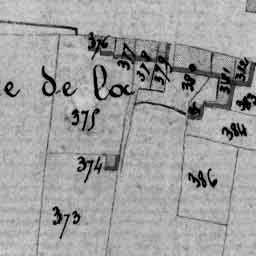 376
377
378
379
380
381
382
383
e de la
375
384
374
386
373